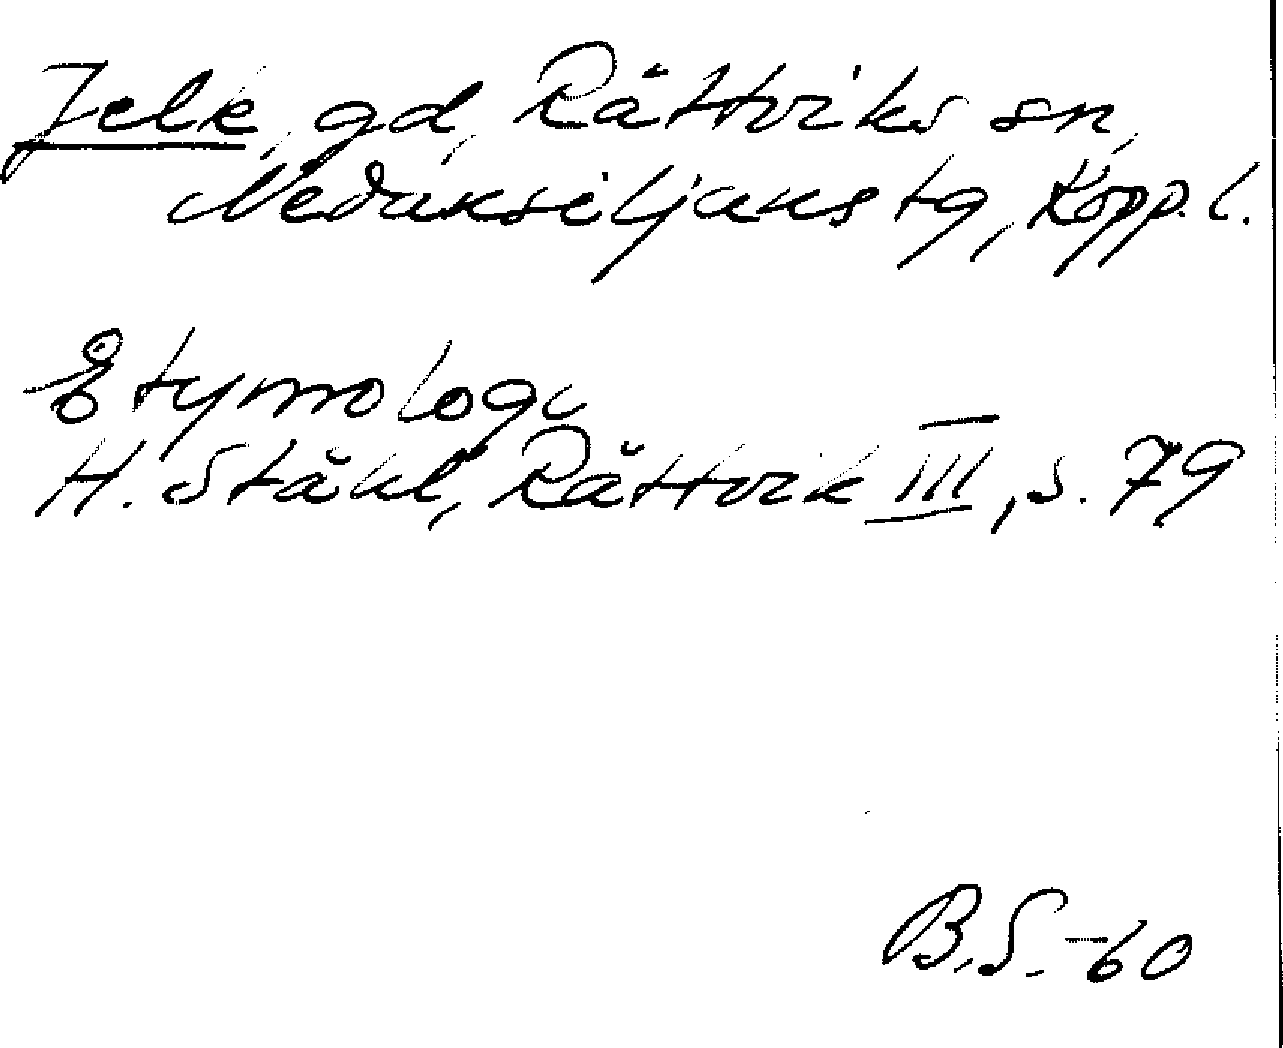 Jelk, gd, Rättviks sn,
Nedansiljans tg, Kopp. l.
Etymologi
H. Ståhl, Rättvik III, s. 79
B.S. -60